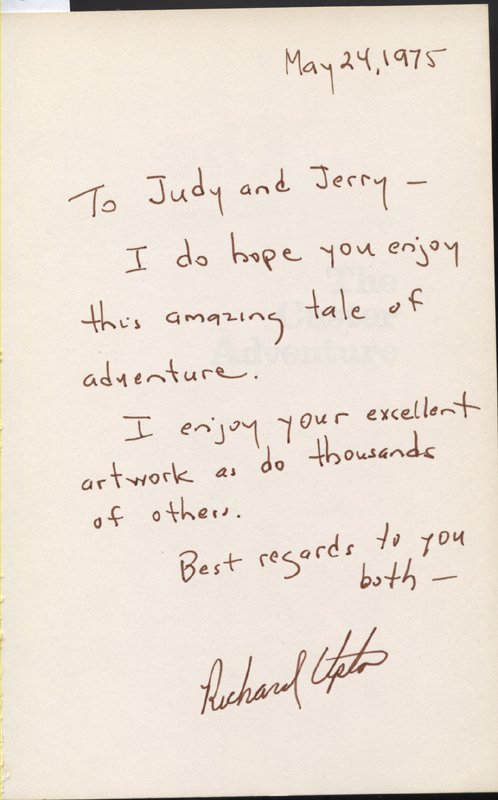 May 24, 1975
To Judy and Jerry —
I do hope you enjoy
this amazing tale of
adventure.
I enjoy your excellent
artwork as do thousands
of others.
Best regards to you
both —
Richard Upton
The
Custer
Adventure